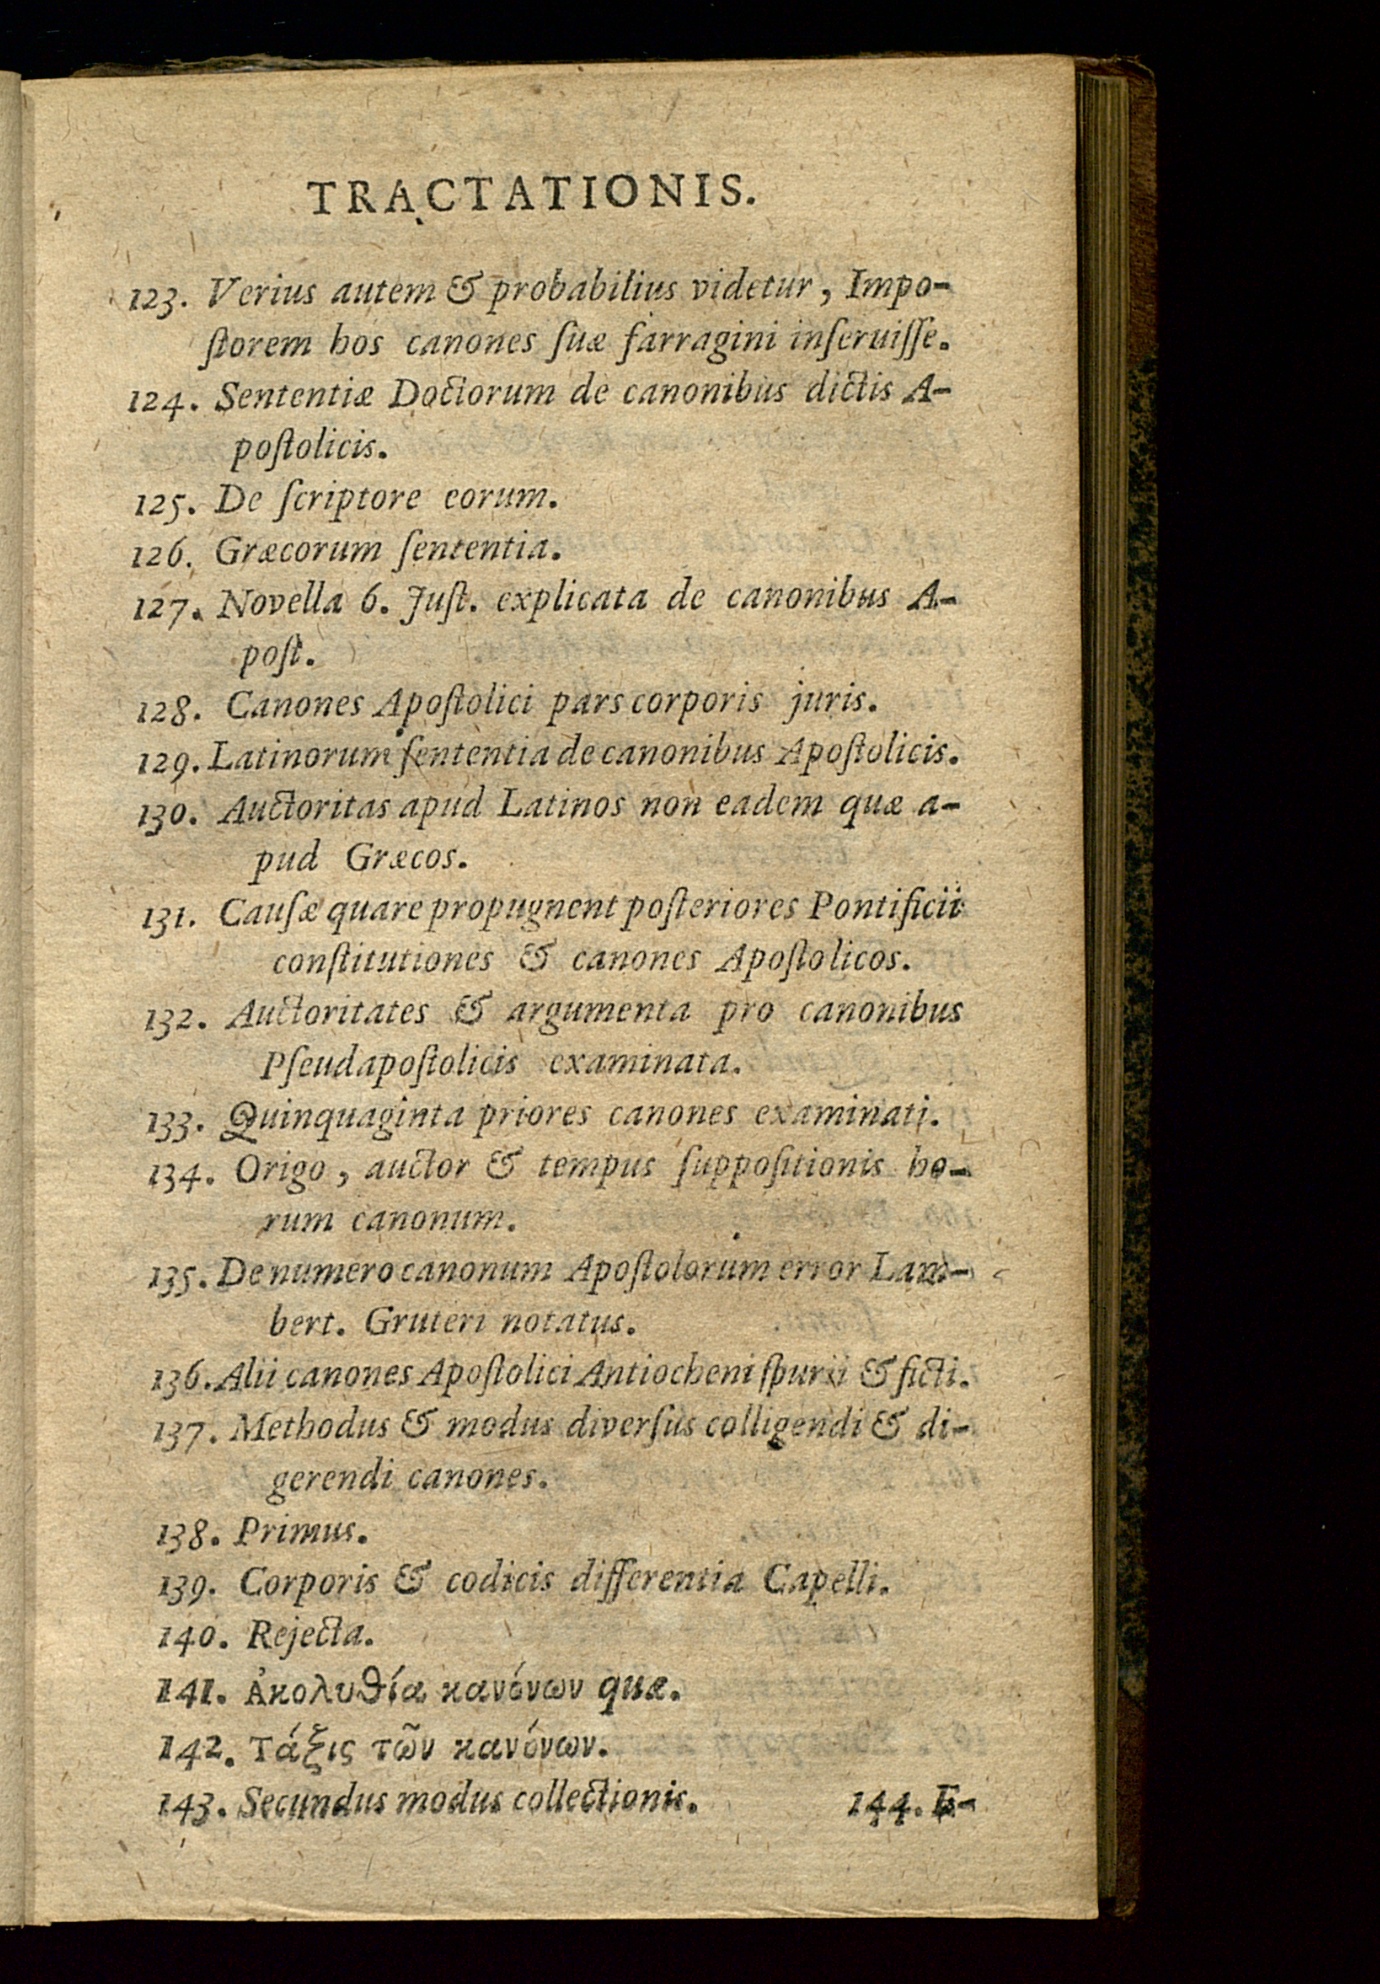 TRACTATIONIS.
123. Verius autem & probabilius videtur, Impo-
ſtorem hos canones ſuæ farragini inſeruiſſe.
124. Sententiæ Doctorum de canonibus dictis A-
poſtolicis.
125. De ſcriptore eorum.
126. Græcorum ſententia.
127. Novella 6. Juſt. explicata de canonibus A-
poſt.
128. Canones Apoſtolici pars corporis juris.
129. Latinorum ſententia de canonibus Apoſtolicis.
130. Auctoritas apud Latinos non eadem quæ a-
pud Græcos.
131. Cauſæ quare propugnent poſteriores Pontificii
conſtitutiones & canones Apoſtolicos.
132. Auctoritates & argumenta pro canonibus
Pſeudapoſtolicis examinata.
133. Quinquaginta priores canones examinati.
134. Origo, auctor & tempus ſuppoſitionis ho-
rum canonum.
135. De numero canonum Apoſtolorum error Lam-
bert. Gruteri notatus.
136. Alii canones Apoſtolici Antiocheni ſpurii & ficti.
137. Methodus & modus diverſus colligendi & di-
gerendi canones.
138. Primus.
139. Corporis & codicis differentia Capelli.
140. Rejecta.
141. Ἀκολυθία κανόνων quæ.
142. Τάξις τῶν κανόνων.
143. Secundus modus collectionis. 144.